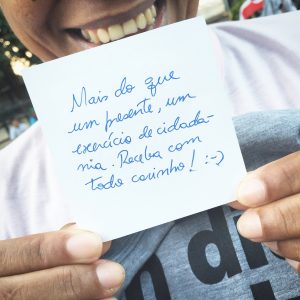 Mais do que
um presente, um
exercício de cidada-
nia. Receba com
todo carinho! :-)
n dia